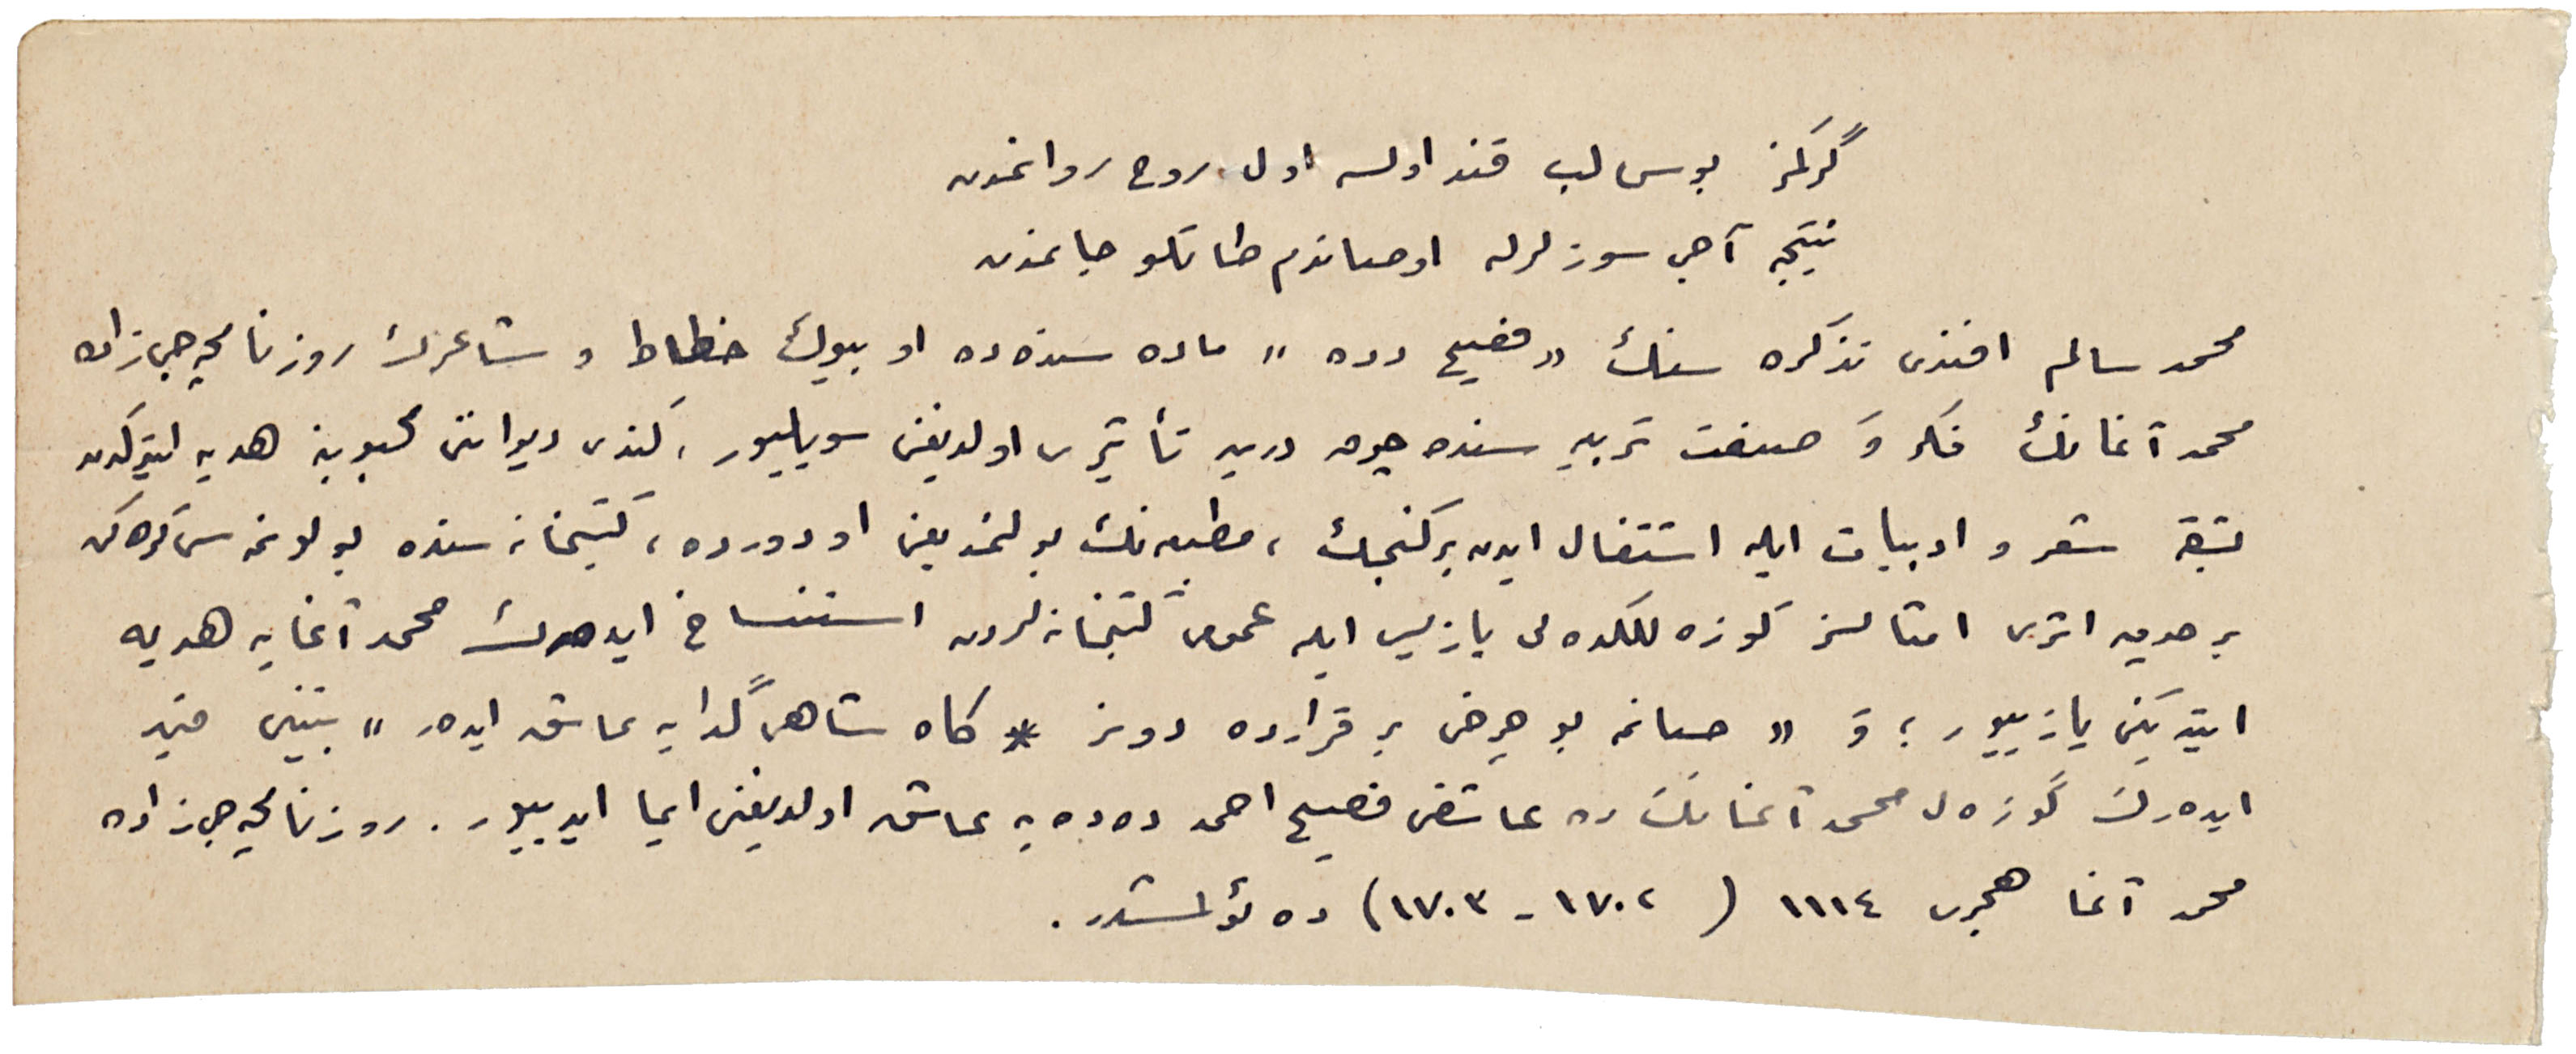 گركمز بوس لب قند اولسه اول روح روانمدن
نتيجه آجی سوزلرله اوصاندم طاتلو جانمدن
محمد سالم افندی تذكره سنك «فصيح دده» ماده سنده ده او بيوك خطاط و شاعرك روزنامچه جی زاده
محمد آغانك فكر و صنعت تربيه سنده چوق درين تأثيری اولديغنی سويليور، كندی ديواننی محبوبنه هديه ايتدكدن
بشقه شعر و ادبيات ايله اشتغال ايدن بر كنجك، مطبعه نك بولنمديغی او دورده، كتبخانه سنده بولونمه سی كرەكن
بر چوق اثری امثالسز كوزەللكده كی يازيسی ايله عمومی كتبخانه لردن استنساخ ايدەرك محمد آغايه هديه
ايتديكنی يازييور؛ و «صانمه بو چرخی بر قرارده دونر * كاه شاهی گدايه عاشق ايدەر» بيتنی قيد
ايدەرك گوزەل محمد آغانك ده عاشقی فصيح احمد دەدەيه عاشق اولديغنی ايما ايدييور. روزنامچه جی زاده
محمد آغا هجری ١١١٤ (١٧٠٢ - ١٧٠٣) ده ئولمشدر.